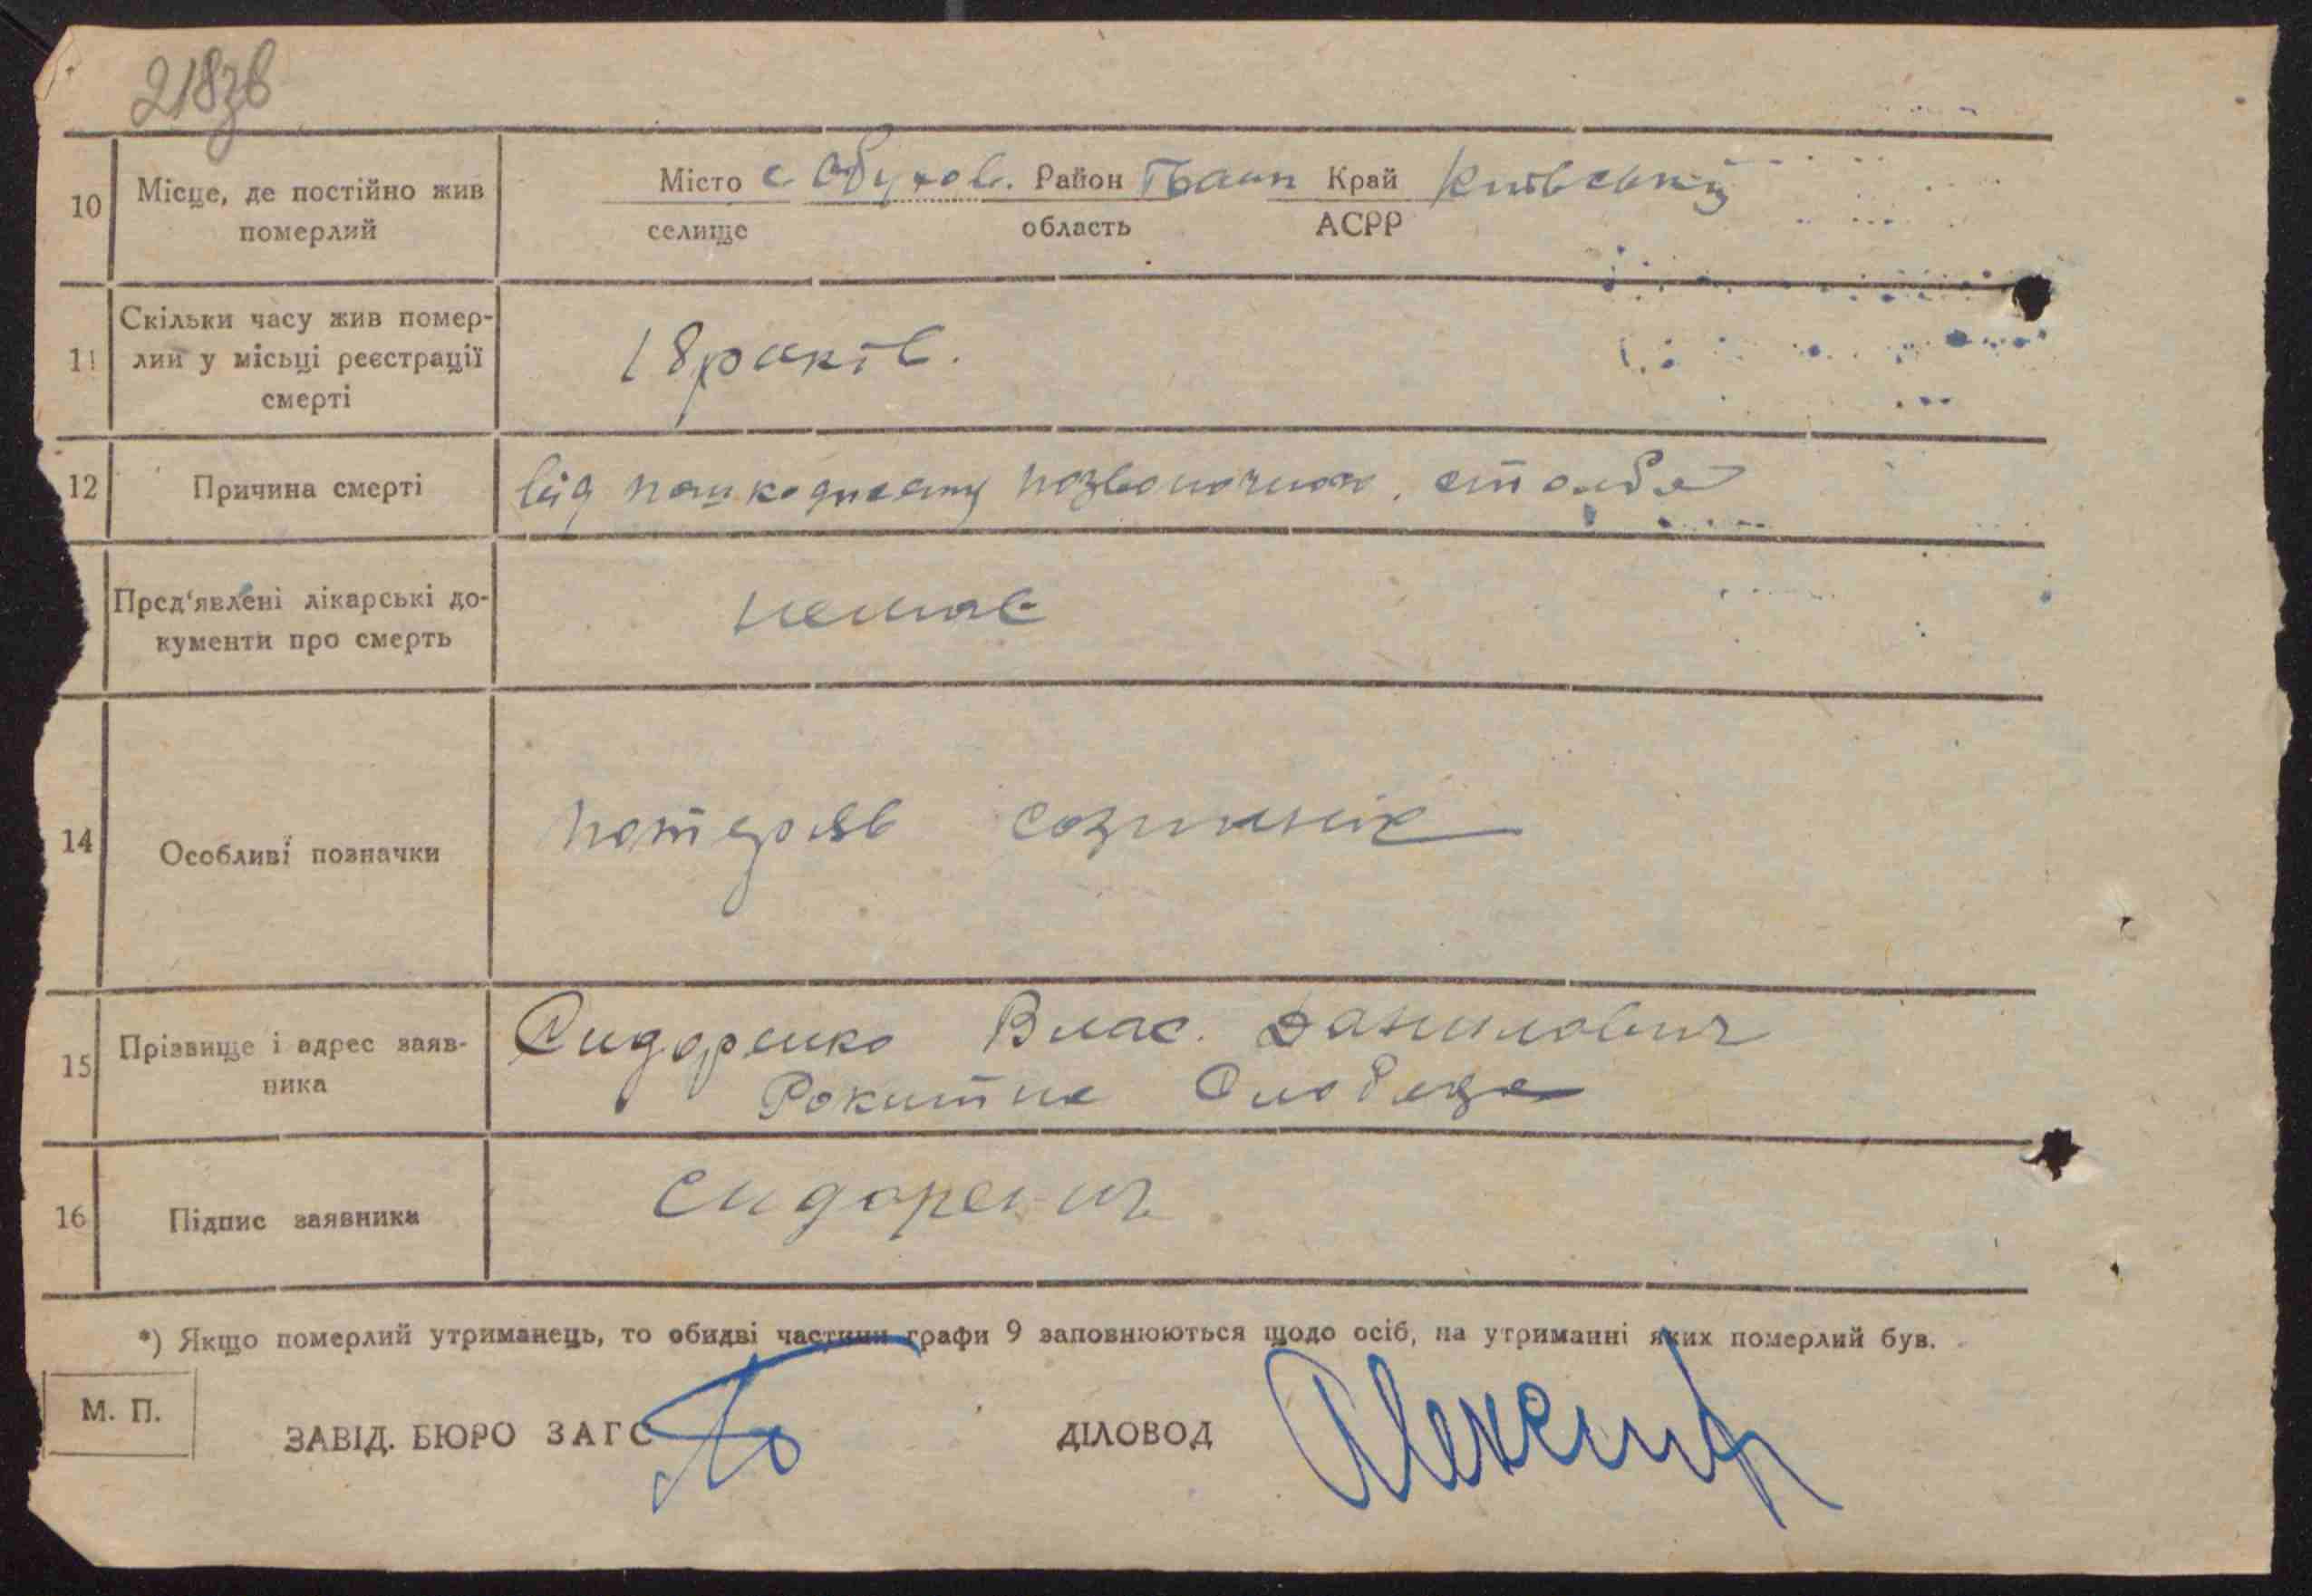 218зв
10 Місце, де постійно жив померлий
Місто с Обухов. Район Край Київський
селище область АСРР
11 Скільки часу жив помер-
лий у місьці реєстрації
смерті
18 років.
12 Причина смерті від пошкодження позвоночног. столба
Пред'явлені лікарські до-
кументи про смерть
немає
14 Особливі позначки потеряв
15 Прізвище і адрес заяв-
ника
Сидоренко Влас. Данилович
Рокитна Слобода
16 Підпис заявника Сидоренко
*) Якщо померлий утриманець, то обидві частини графи 9 заповнюються щодо осіб, на утриманні яких померлий був.
М. П.
ЗАВІД. БЮРО ЗАГС ДІЛОВОД